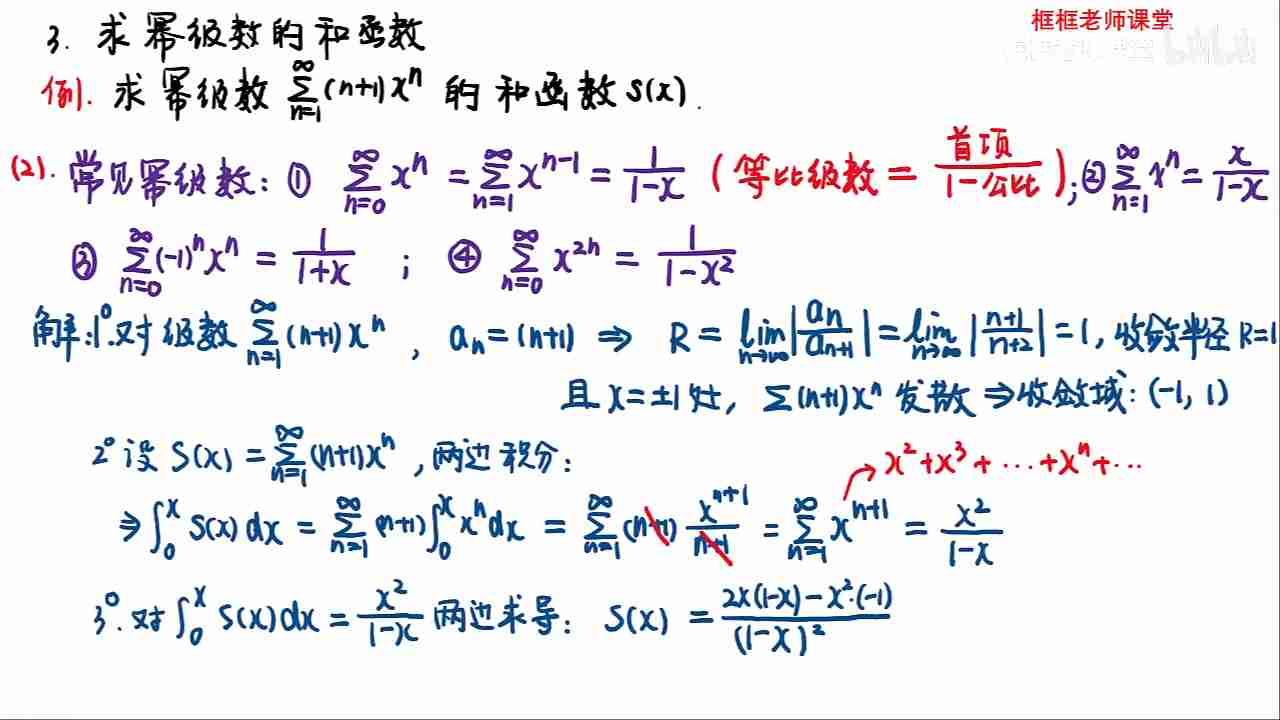 框框老师课堂
3. 求幂级数的和函数
例. 求幂级数 ∑_{n=1}^{∞}(n+1)x^n 的和函数 S(x).
(2). 常见幂级数: ① ∑_{n=0}^{∞} x^n = ∑_{n=1}^{∞} x^{n-1} = 1/(1-x) (等比级数 = 首项/(1-公比)); ② ∑_{n=1}^{∞} x^n = x/(1-x)
③ ∑_{n=0}^{∞} (-1)^n x^n = 1/(1+x) ; ④ ∑_{n=0}^{∞} x^{2n} = 1/(1-x^2)
解: 1°. 对级数 ∑_{n=1}^{∞} (n+1)x^n , a_n = (n+1) ⇒ R = lim_{n→∞} |a_n/a_{n+1}| = lim_{n→∞} |(n+1)/(n+2)| = 1, 收敛半径 R=1
且 x=±1处, ∑(n+1)x^n 发散 ⇒ 收敛域: (-1, 1)
2° 设 S(x) = ∑_{n=1}^{∞} (n+1)x^n , 两边积分:
x^2+x^3+…+x^n+…
⇒ ∫_0^x S(x)dx = ∑_{n=1}^{∞} (n+1)∫_0^x x^n dx = ∑_{n=1}^{∞} (n+1) x^{n+1}/(n+1) = ∑_{n=1}^{∞} x^{n+1} = x^2/(1-x)
3°. 对 ∫_0^x S(x)dx = x^2/(1-x) 两边求导: S(x) = (2x(1-x)-x^2·(-1))/(1-x)^2